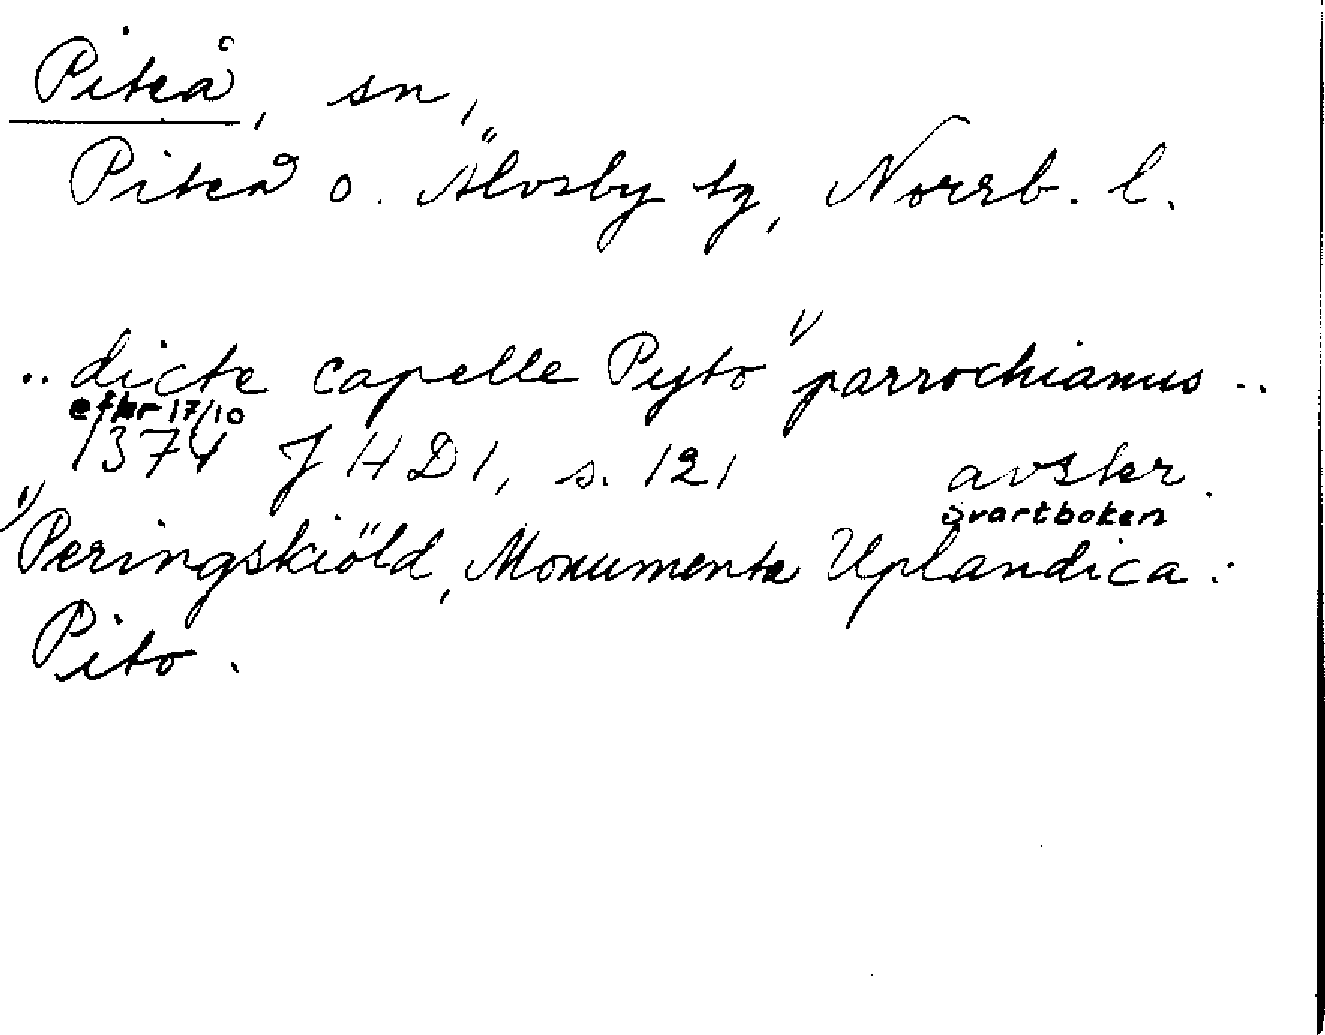 Piteå, sn,
Piteå o. Älvsby tg, Norrb. l.
.. dicte capelle Pyto 1) parrochianus ..
efter 17/10
1374 J H D 1, s. 121 avskr.
svartboken
1) Peringskiöld, Monumenta Uplandica:
Pito.